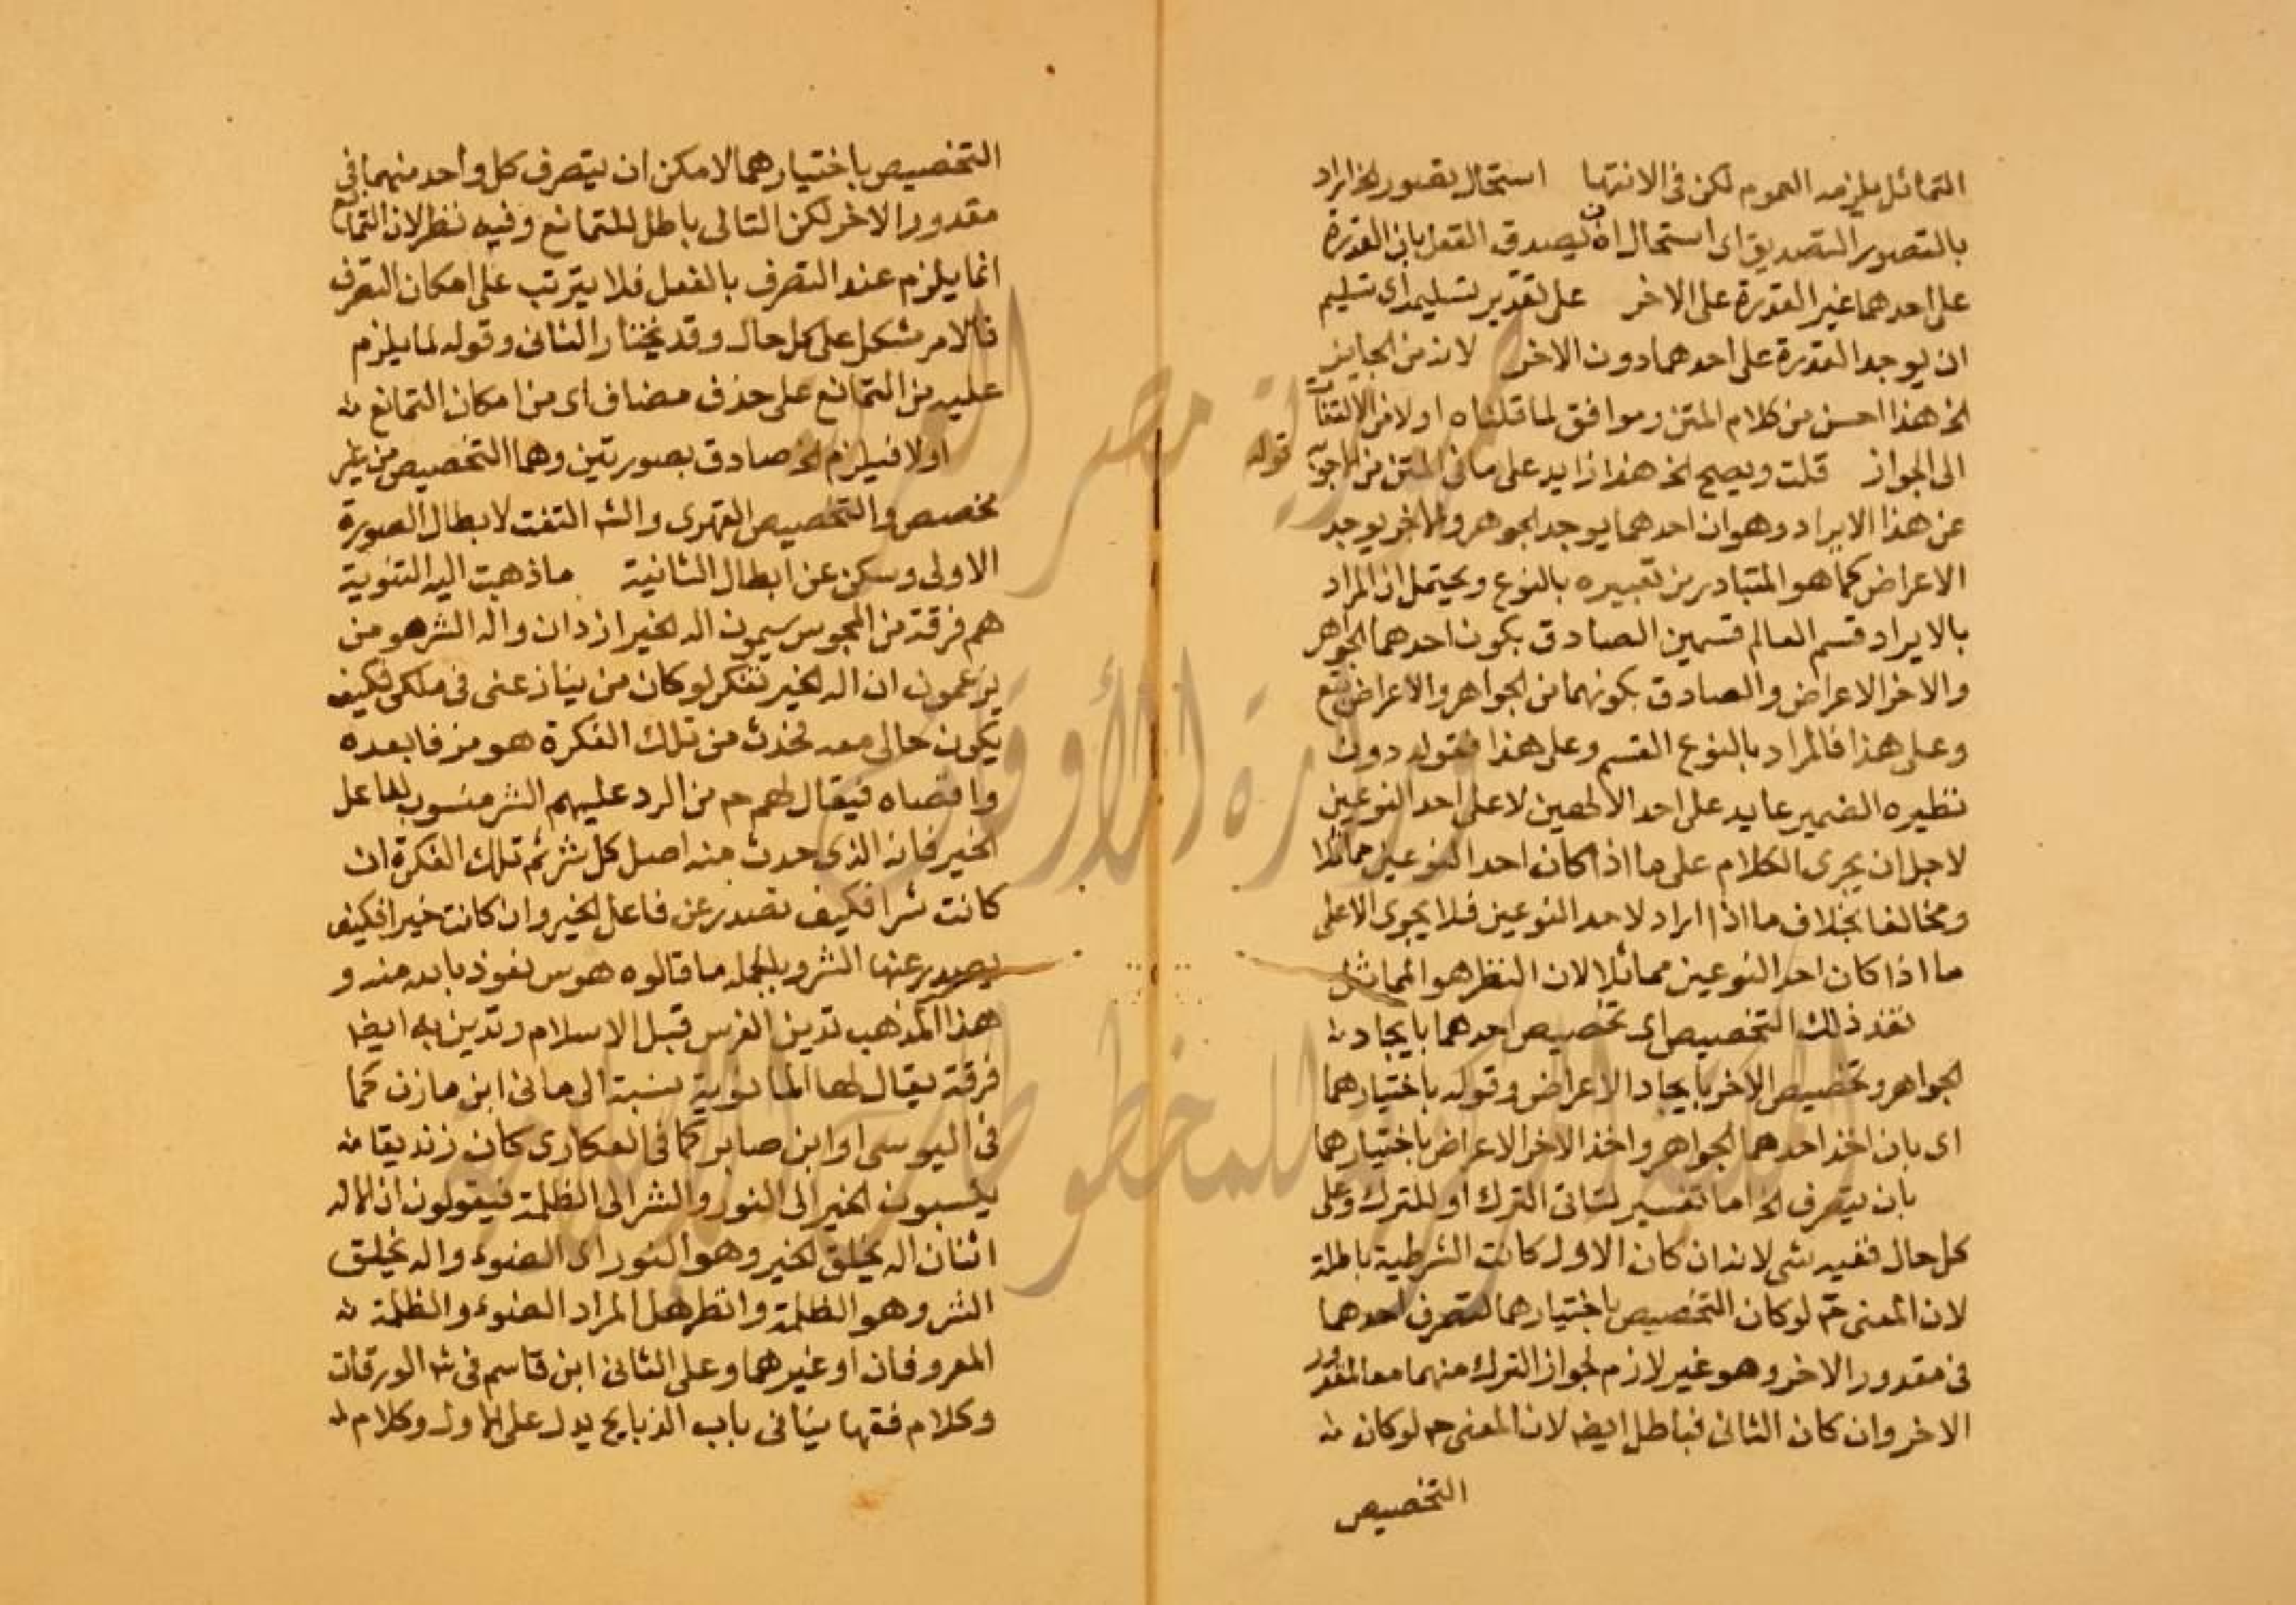 التماثل يلزمه العموم لكن فى الانتها استحال بتصور الخ اراد
بالتصور التصديق اى استحال ان يصدق العقل بان القدرة
على احدهما غير القدرة على الاخر على تقدير تسليمه اى تسليم
ان يوجد القدرة على احدهما دون الاخر لانه من الجايز
الخ هذا احسن من كلام المتن وموافق لما قلناه اولا من الالتفات
الى الجواز قلت ويصح الخ هذا زايد على ما فى المتن من الاجوبة قوله
عن هذا الايراد وهو ان احدهما يوجد الجوهر والاخر يوجد
الاعراض كما هو المتبادر من تعبيره بالنوع ويحتمل ان المراد
بالايراد قسم العالم قسمين الصادق بكون احدهما الجواهر
والاخر الاعراض والصادق بكونهما من الجواهر والاعراض
وعلى هذا فالمراد بالنوع القسم وعلى هذا فقوله دون
نظيره الضمير عايد على احد الالهين لا على احد النوعين
لاجل ان يجرى الكلام على ما اذا كان احد النوعين مماثلا
ومخالفا بخلاف ما اذا اراد لاحد النوعين فلا يجرى الا على
ما اذا كان احد النوعين مماثلا لان النظر هو المماثل
نفذ ذلك التخصيص اى تخصيص احدهما بايجاد
الجواهر وتخصيص الاخر بايجاد الاعراض وقوله باختيارهما
اى بان اخذ احدهما الجواهر واخذ الاخر الاعراض باختيارهما
بان يتصرف الخ اما تفسير لتاتى الترك او للترك وعلى
كل حال ففيه شى لانه ان كان الاول كانت الشرطية باطلة
لان المعنى ح لو كان التخصيص باختيارهما لتصرف احدهما
فى مقدور الاخر وهو غير لازم لجواز الترك منهما معا لمقدور
الاخر وان كان الثانى فباطل ايضا لان المعنى ح لو كان
التخصيص
التخصيص باختيارهما لامكن ان يتصرف كل واحد منهما فى
مقدور الاخر لكن التالى باطل للتمانع وفيه نظر لان التمانع
انما يلزم عند التصرف بالفعل فلا يترتب على امكان التصرف
فالامر مشكل على كل حال وقد نختار الثانى وقوله لما يلزم
عليه من التمانع على حذف مضاف اى من امكان التمانع
اولا فيلزم الخ صادق بصورتين وهما التخصيص من غير
مخصص والتخصيص القهرى والش التفت لابطال الصورة
الاولى وسكن عن ابطال الثانية ما ذهبت اليه الثنوية
هم فرقة من المجوس يسمون اله الخير ازدان واله الشر هو من
يزعمون ان اله الخير تفكر لو كان من ينازعنى فى ملكى فكيف
يكون حالى معه فحدث من تلك الفكرة هو من فابعده
واقصاه فيقال لهم ح من الرد عليهم الشر منسوب لفاعل
الخير فانه الذى حدث منه اصل كل شر ثم تلك الفكرة ان
كانت شرا فكيف تصدر عن فاعل الخير وان كانت خيرا فكيف
يصدر عنها الشر وبالجمله ما قالوه هوس نعوذ بالله منه و
هذا المذهب تدين الفرس قبل الاسلام وتدين به ايضا
فرقة يقال لها المانوية نسبة الى مانى ابن مازن كما
فى اليوسى او ابن صابر كما فى العكارى كان زنديقا
ينسبون الخير الى النور والشر الى الظلمة فيقولون ان الاله
اثنان اله يخلق الخير وهو النور اى الضوء واله يخلق
الشر وهو الظلمة وانظر هل المراد الضوء والظلمة
المعروفان او غيرهما وعلى الثانى ابن قاسم فى ش الورقات
وكلام فقهاينا فى باب الذبايح يدل على الاول وكلام